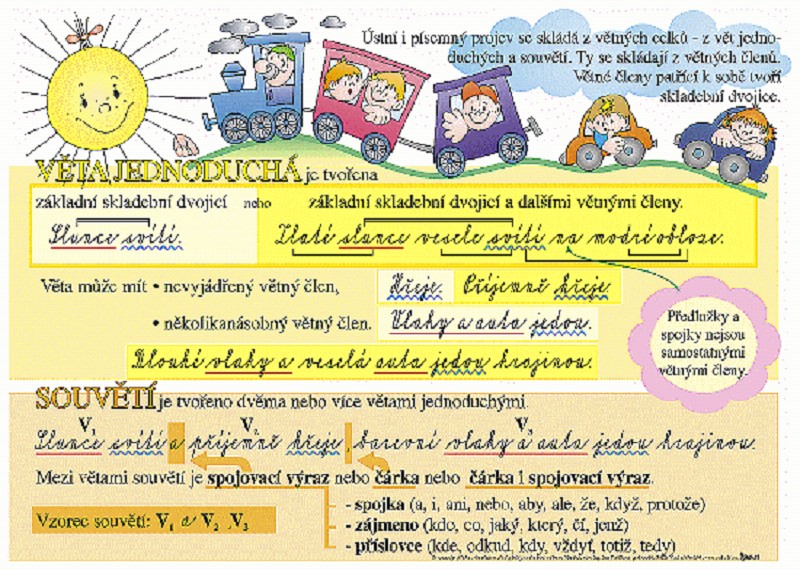 Ústní i písemný projev se skládá z větných celků - z vět jedno-
duchých a souvětí. Ty se skládají z větných členů.
Větné členy patřící k sobě tvoří
skladební dvojice.
VĚTA JEDNODUCHÁ je tvořena
základní skladební dvojicí nebo základní skladební dvojicí a dalšími větnými členy.
Slunce svítí. Zlaté slunce vesele svítí na modré obloze.
Věta může mít • nevyjádřený větný člen, Hřeje. Příjemně hřeje.
• několikanásobný větný člen. Vlaky a auta jedou.
Dlouhé vlaky a veselá auta jedou krajinou.
Předložky a
spojky nejsou
samostatnými
větnými členy.
SOUVĚTÍ je tvořeno dvěma nebo více větami jednoduchými
V1 V2 V3
Slunce svítí a příjemně hřeje, barevné vlaky a auta jedou krajinou.
Mezi větami souvětí je spojovací výraz nebo čárka nebo čárka i spojovací výraz.
- spojka (a, i, ani, nebo, aby, ale, že, když, protože)
Vzorec souvětí: V1 a V2 ,V3
- zájmeno (kdo, co, jaký, který, čí, jenž)
- příslovce (kde, odkud, kdy, vždyť, totiž, tedy)